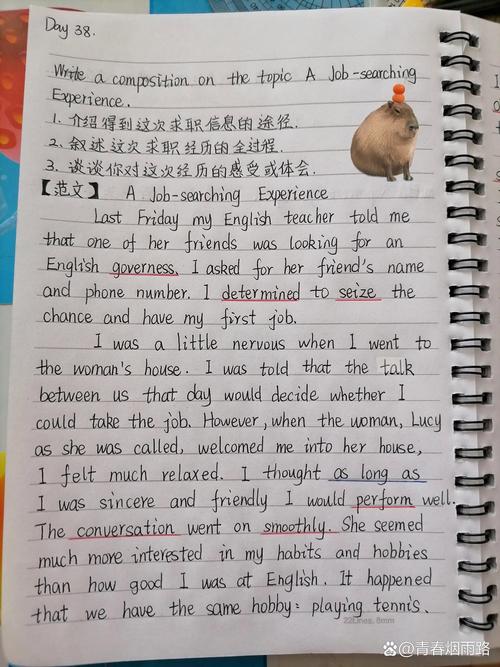 Day 38.
Write a composition on the topic A Job-searching
Experience.
1. 介绍得到这次求职信息的途径.
2. 叙述这次求职经历的全过程.
3. 谈谈你对这次经历的感受或体会.
【范文】 A Job-searching Experience
Last Friday my English teacher told me
that one of her friends was looking for an
English governess. I asked for her friend's name
and phone number. I determined to seize the
chance and have my first job.
I was a little nervous when I went to
the woman's house. I was told that the talk
between us that day would decide whether I
could take the job. However, when the woman, Lucy
as she was called, welcomed me into her house,
I felt much relaxed. I thought as long as
I was sincere and friendly I would perform well.
The conversation went on smoothly. She seemed
much more interested in my habits and hobbies
than how good I was at English. It happened
that we have the same hobby: playing tennis.
22Lines, 8mm
@青春烟雨路